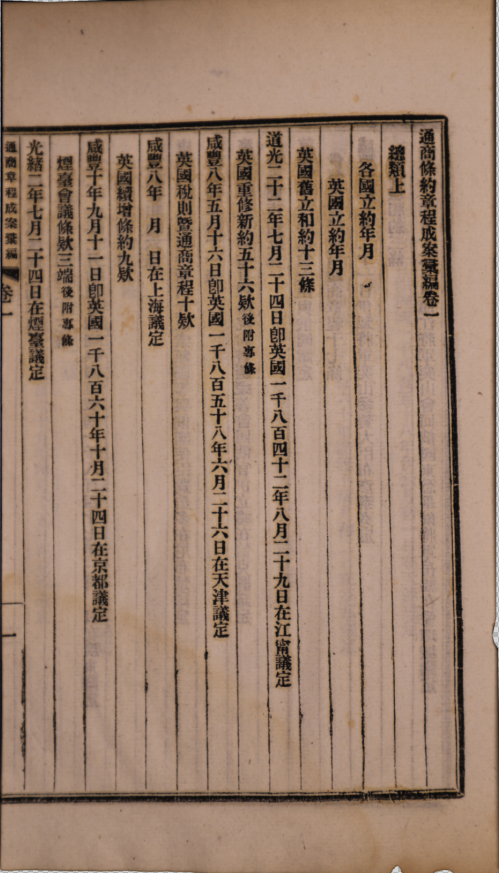 通商條約章程成案彙編卷一
總類上
各國立約年月
英國立約年月
英國舊立和約十三條
道光二十二年七月二十四日卽英國一千八百四十二年八月二十九日在江甯議定
英國重修新約五十六欵後附專條
咸豐八年五月十六日卽英國一千八百五十八年六月二十六日在天津議定
英國稅則暨通商章程十欵
咸豐八年 月 日在上海議定
英國續增條約九欵
咸豐十年九月十一日卽英國一千八百六十年十月二十四日在京都議定
煙臺會議條欵三端後附專條
光緒二年七月二十四日在煙臺議定
通商章程成案彙編 卷一 一